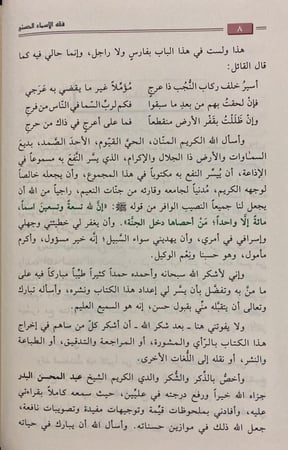 فقه الأسماء الحسنى
٨
هذا ولست في هذا الباب بفارس ولا راجل، وإنما حالي فيه كما
قال القائل:
أسيرُ خلف ركاب النُّجْب ذا عرج مُؤمِّلاً غير ما يقضي به عَرَجي
فإنْ لحقتُ بهم من بعدِ ما سبقوا فكم لربِّ السَّما في النَّاس من فرج
وإنْ ظللتُ بقَفْر الأرض منقطعاً فما على أعرج في ذاك من حرج
وأسأل الله الكريم المنان، الحيَّ القيّوم، الأحدَ الصَّمد، بديعَ
السماوات والأرض ذا الجلال والإكرام، الذي يسَّر النَّفع به مسموعاً في
الإذاعة، أن يُيسِّر النفع به مكتوباً في هذا المجموع، وأن يجعله خالصاً
لوجهه الكريم، مُدنياً لجامعه وقارئه من جنَّات النعيم، راجياً من الله أن
يجعل لنا جميعاً النصيب الوافر من قوله ﷺ: «إنَّ لله تسعةً وتسعينَ اسماً،
مائةً إلَّا واحداً؛ مَنْ أحصاها دخل الجنَّة». وأن يغفر لي خطيئتي وجهلي
وإسرافي في أمري، وأن يهديني سواء السَّبيل؛ إنَّه خير مسؤول، وأكرم
مأمول، وهو حسبنا ونِعْمَ الوكيل.
وإني لأشكر الله سبحانه وأحمده حمداً كثيراً طيِّباً مباركاً فيه على
ما منَّ به وتفضَّل بأن يسَّر لي إعداد هذا الكتاب ونشره، وأسأله تبارك
وتعالى أن يتقبَّله منِّي بقبول حسن، إنه هو السميع العليم.
ولا يفوتني هنا ـ بعد شكر الله ـ أن أشكر كلَّ من ساهم في إخراج
هذا الكتاب بالرّأي والمشورة، أو المراجعة والتدقيق، أو الطباعة
والنشر، أو نقله إلى اللُّغات الأخرى.
وأخصُّ بالذِّكر والشُّكر والدي الكريم الشيخ عبد المحسن البدر
جزاه الله خيراً ورفع درجته في عليِّين، حيث سمعه كاملاً بقراءتي
عليه، وأفادني بملحوظات قيِّمة وتوجيهات مفيدة وتصويبات نافعة،
جعل الله ذلك في موازين حسناته. وأسأل الله أن يبارك في حياته